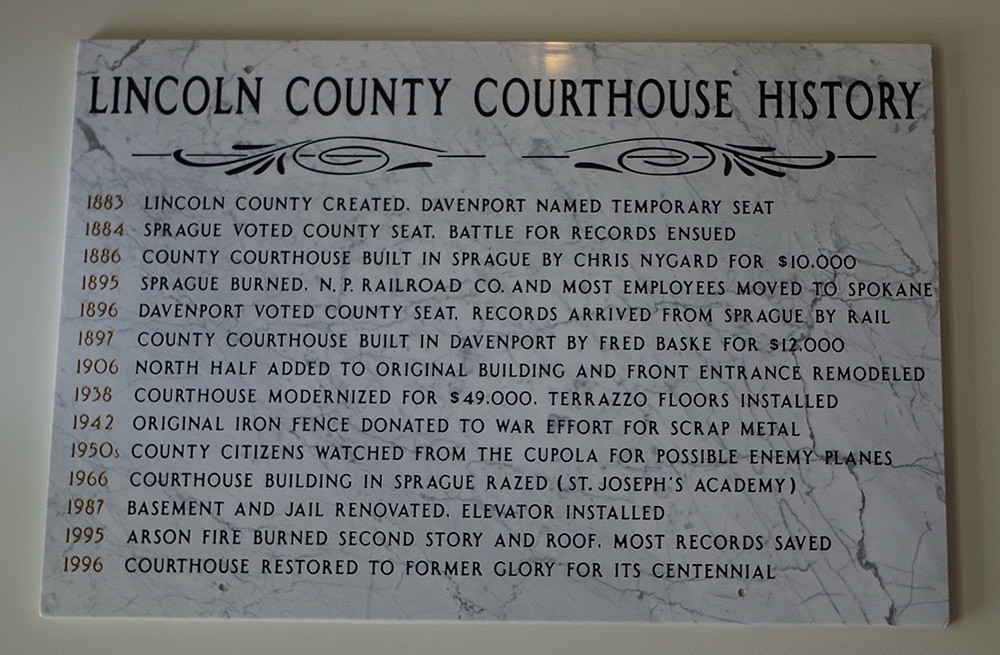 LINCOLN COUNTY COURTHOUSE HISTORY
1883 LINCOLN COUNTY CREATED. DAVENPORT NAMED TEMPORARY SEAT
1884 SPRAGUE VOTED COUNTY SEAT. BATTLE FOR RECORDS ENSUED
1886 COUNTY COURTHOUSE BUILT IN SPRAGUE BY CHRIS NYGARD FOR $10,000
1895 SPRAGUE BURNED. N. P. RAILROAD CO. AND MOST EMPLOYEES MOVED TO SPOKANE
1896 DAVENPORT VOTED COUNTY SEAT. RECORDS ARRIVED FROM SPRAGUE BY RAIL
1897 COUNTY COURTHOUSE BUILT IN DAVENPORT BY FRED BASKE FOR $12,000
1906 NORTH HALF ADDED TO ORIGINAL BUILDING AND FRONT ENTRANCE REMODELED
1938 COURTHOUSE MODERNIZED FOR $49,000. TERRAZZO FLOORS INSTALLED
1942 ORIGINAL IRON FENCE DONATED TO WAR EFFORT FOR SCRAP METAL
1950s COUNTY CITIZENS WATCHED FROM THE CUPOLA FOR POSSIBLE ENEMY PLANES
1966 COURTHOUSE BUILDING IN SPRAGUE RAZED (ST. JOSEPH'S ACADEMY)
1987 BASEMENT AND JAIL RENOVATED. ELEVATOR INSTALLED
1995 ARSON FIRE BURNED SECOND STORY AND ROOF. MOST RECORDS SAVED
1996 COURTHOUSE RESTORED TO FORMER GLORY FOR ITS CENTENNIAL